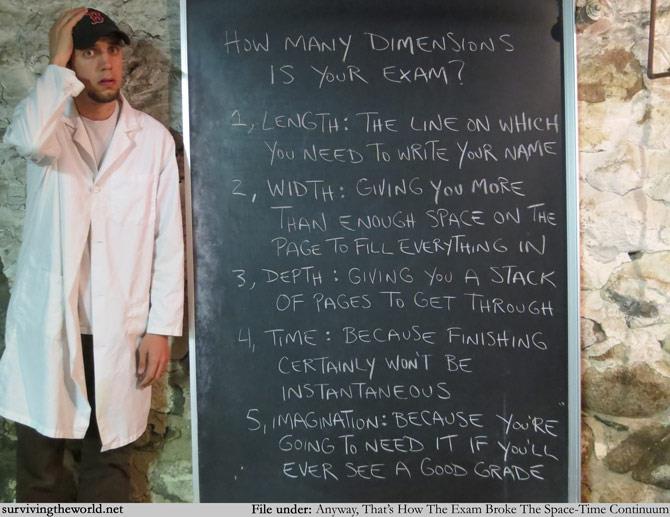 HOW MANY DIMENSIONS
IS YOUR EXAM?
1, LENGTH: THE LINE ON WHICH
YOU NEED TO WRITE YOUR NAME
2, WIDTH: GIVING YOU MORE
THAN ENOUGH SPACE ON THE
PAGE TO FILL EVERYTHING IN
3, DEPTH: GIVING YOU A STACK
OF PAGES TO GET THROUGH
4, TIME: BECAUSE FINISHING
CERTAINLY WON'T BE
INSTANTANEOUS
5, IMAGINATION: BECAUSE YOU'RE
GOING TO NEED IT IF YOU'LL
EVER SEE A GOOD GRADE
survivingtheworld.net
File under: Anyway, That's How The Exam Broke The Space-Time Continuum